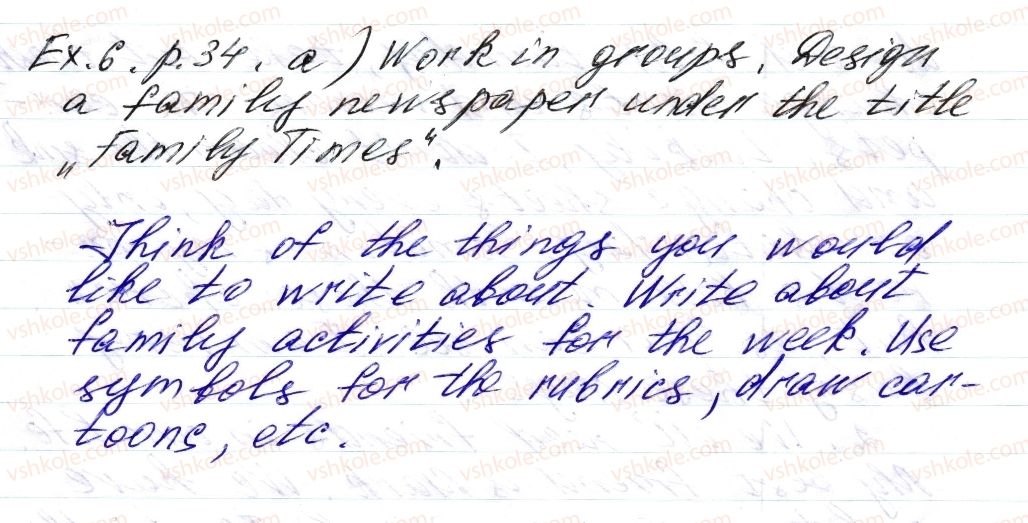 Ex. 6. p. 34. a) Work in groups. Design
a family newspaper under the title
„Family Times“.
Think of the things you would
like to write about. Write about
family activities for the week. Use
symbols for the rubrics, draw car-
toons, etc.